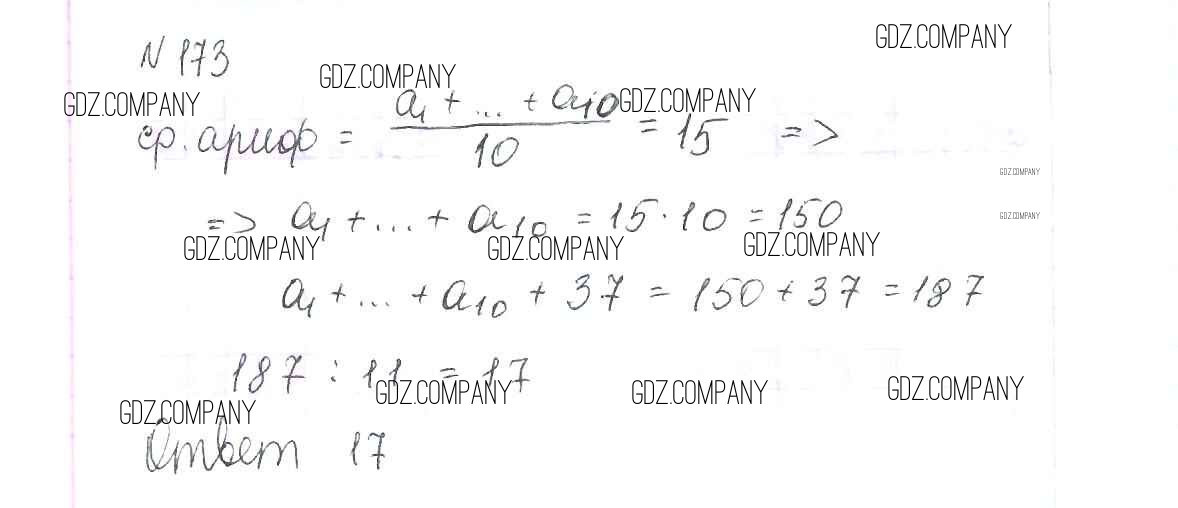 N 173
GDZ.COMPANY
GDZ.COMPANY
GDZ.COMPANY
GDZ.COMPANY
ср. ариф = (a₁ + ... + a₁₀) / 10 = 15 =>
GDZ.COMPANY
=> a₁ + ... + a₁₀ = 15 · 10 = 150
GDZ.COMPANY
GDZ.COMPANY GDZ.COMPANY GDZ.COMPANY
a₁ + ... + a₁₀ + 37 = 150 + 37 = 187
187 : 11 = 17
GDZ.COMPANY GDZ.COMPANY GDZ.COMPANY
GDZ.COMPANY
Ответ 17